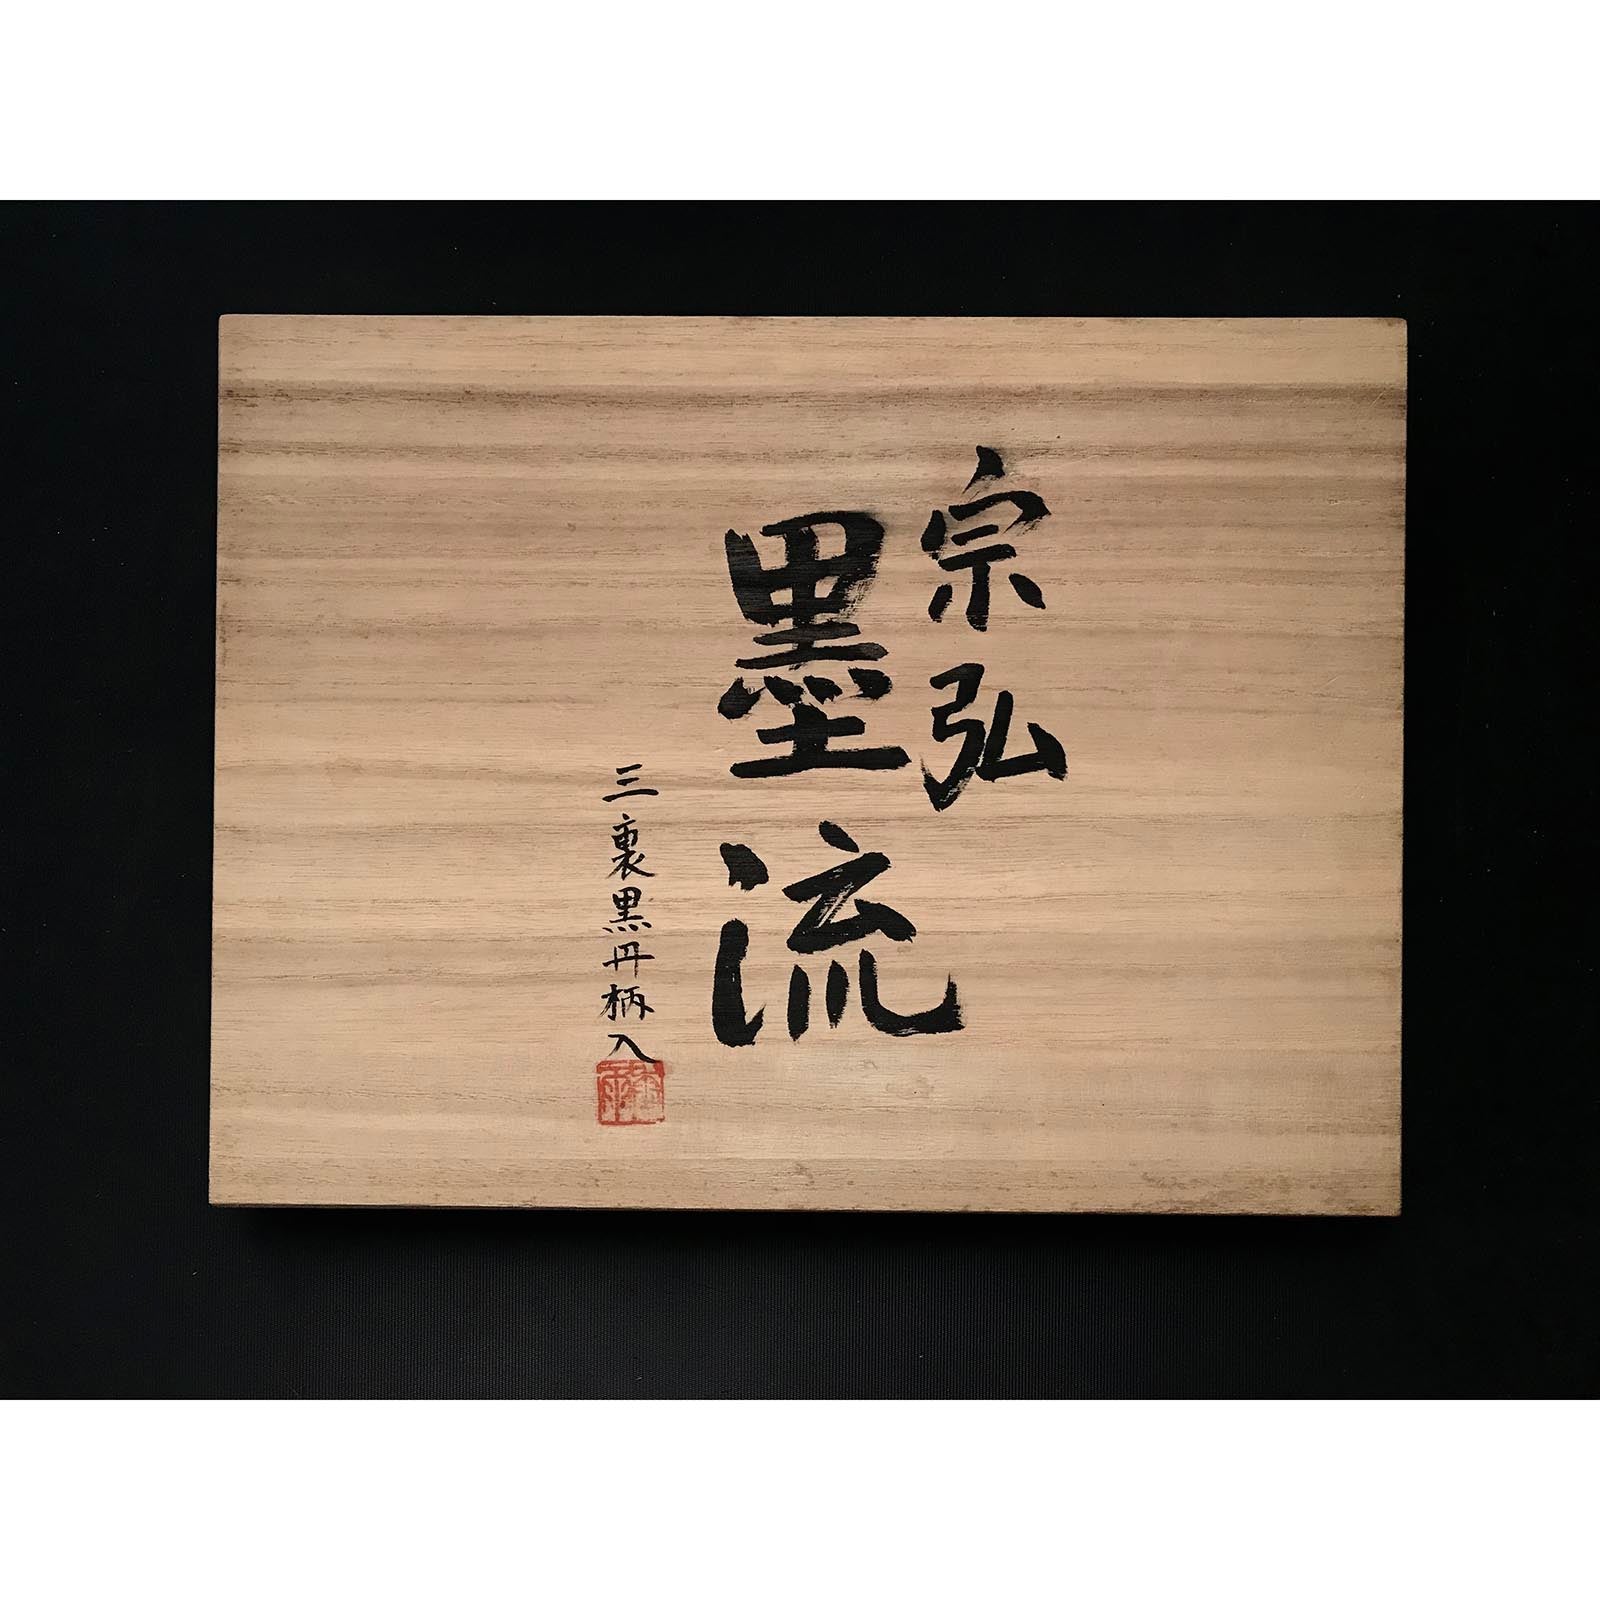 宗弘
墨流
三裏黒丹柄入